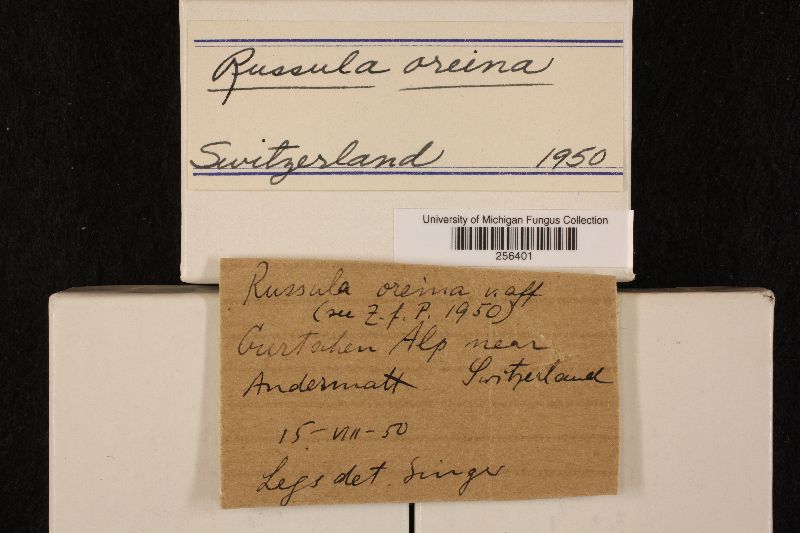 Russula oreina
Switzerland 1950
University of Michigan Fungus Collection
256401
Russula oreina v. aff
(see Z. f. P. 1950)
Gurtschen Alp near
Andermatt Switzerland
15-VIII-50
Leg & det. Singer